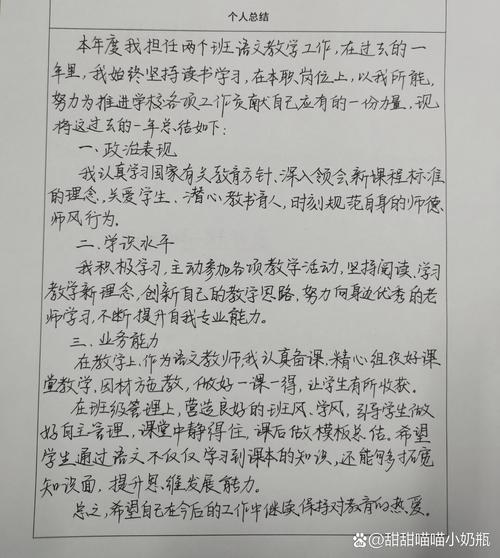 个人总结
本年度我担任两个班语文教学工作,在过去的一
年里,我始终坚持读书学习,在本职岗位上,以我所能,
努力为推进学校各项工作贡献自己应有的一份力量,现
将这过去的一年总结如下:
一、政治表现
我认真学习国家有关教育方针、深入领会新课程标准
的理念,关爱学生、潜心教书育人,时刻规范自身的师德
师风行为.
二、学识水平
我积极学习,主动参加各项教学活动,坚持阅读、学习
教学新理念,创新自己的教学思路,努力向身边优秀的老
师学习,不断提升自我专业能力。
三、业务能力
在教学上,作为语文教师,我认真备课、精心组织好课
堂教学、因材施教,做好一课一得,让学生有所收获.
在班级管理上,营造良好的班风、学风,引导学生做
好自主管理,课堂中静得住,课后做模板总结。希望
学生通过语文不仅仅学习到课本的知识,还能够拓宽
知识面,提升思维发展能力。
总之,希望自己在今后的工作中继续保持对教育的热爱。
@甜甜喵喵小奶瓶